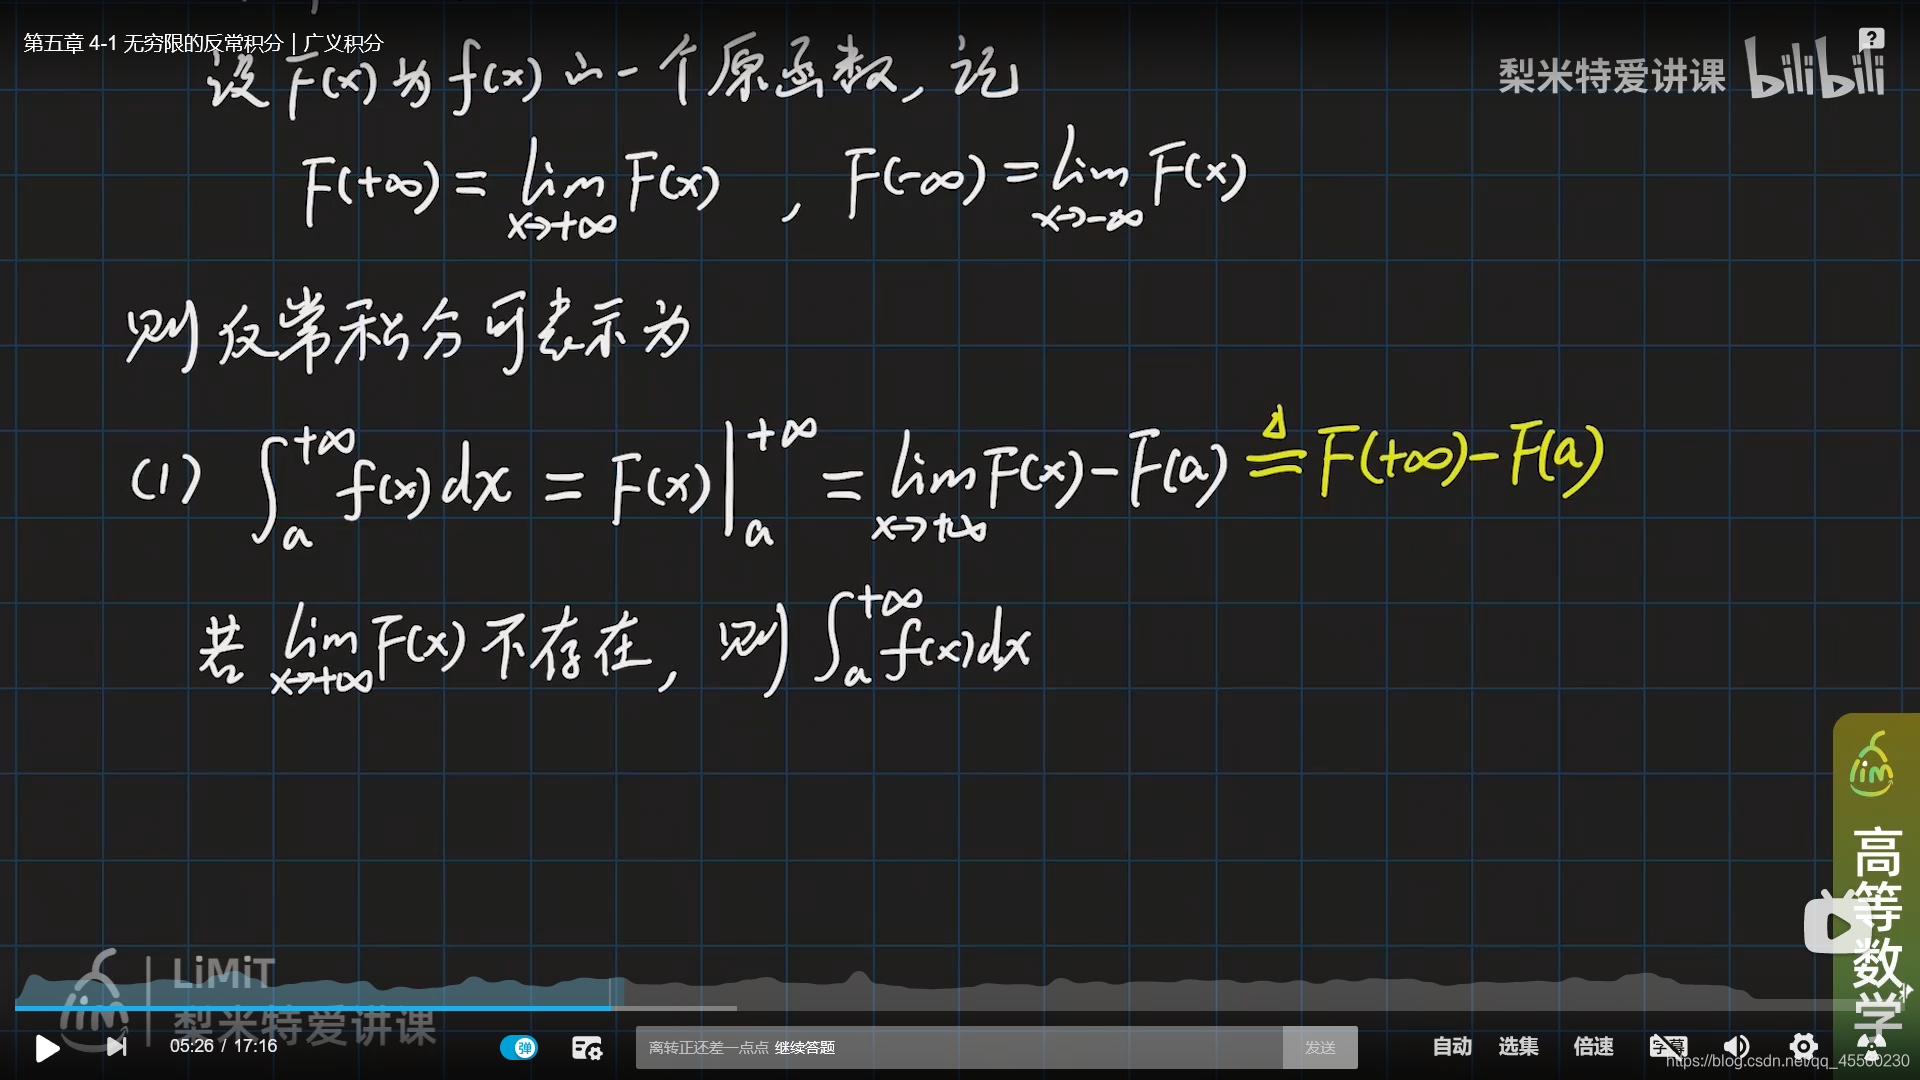 第五章 4-1 无穷限的反常积分 | 广义积分
梨米特爱讲课 bilibili
设 F(x) 为 f(x) 的一个原函数, 记
F(+∞) = lim F(x) , F(-∞) = lim F(x)
x→+∞ x→-∞
则反常积分可表示为
(1) ∫ₐ^{+∞} f(x)dx = F(x)|ₐ^{+∞} = lim F(x) - F(a) ≜ F(+∞) - F(a)
x→+∞
若 lim F(x) 不存在, 则 ∫ₐ^{+∞} f(x)dx
x→+∞
lim
高等数学
LiMiT
lim 梨米特爱讲课
05:26 / 17:16 弹 离转正还差一点点 继续答题 发送 自动 选集 倍速 字幕
https://blog.csdn.net/qq_45560230